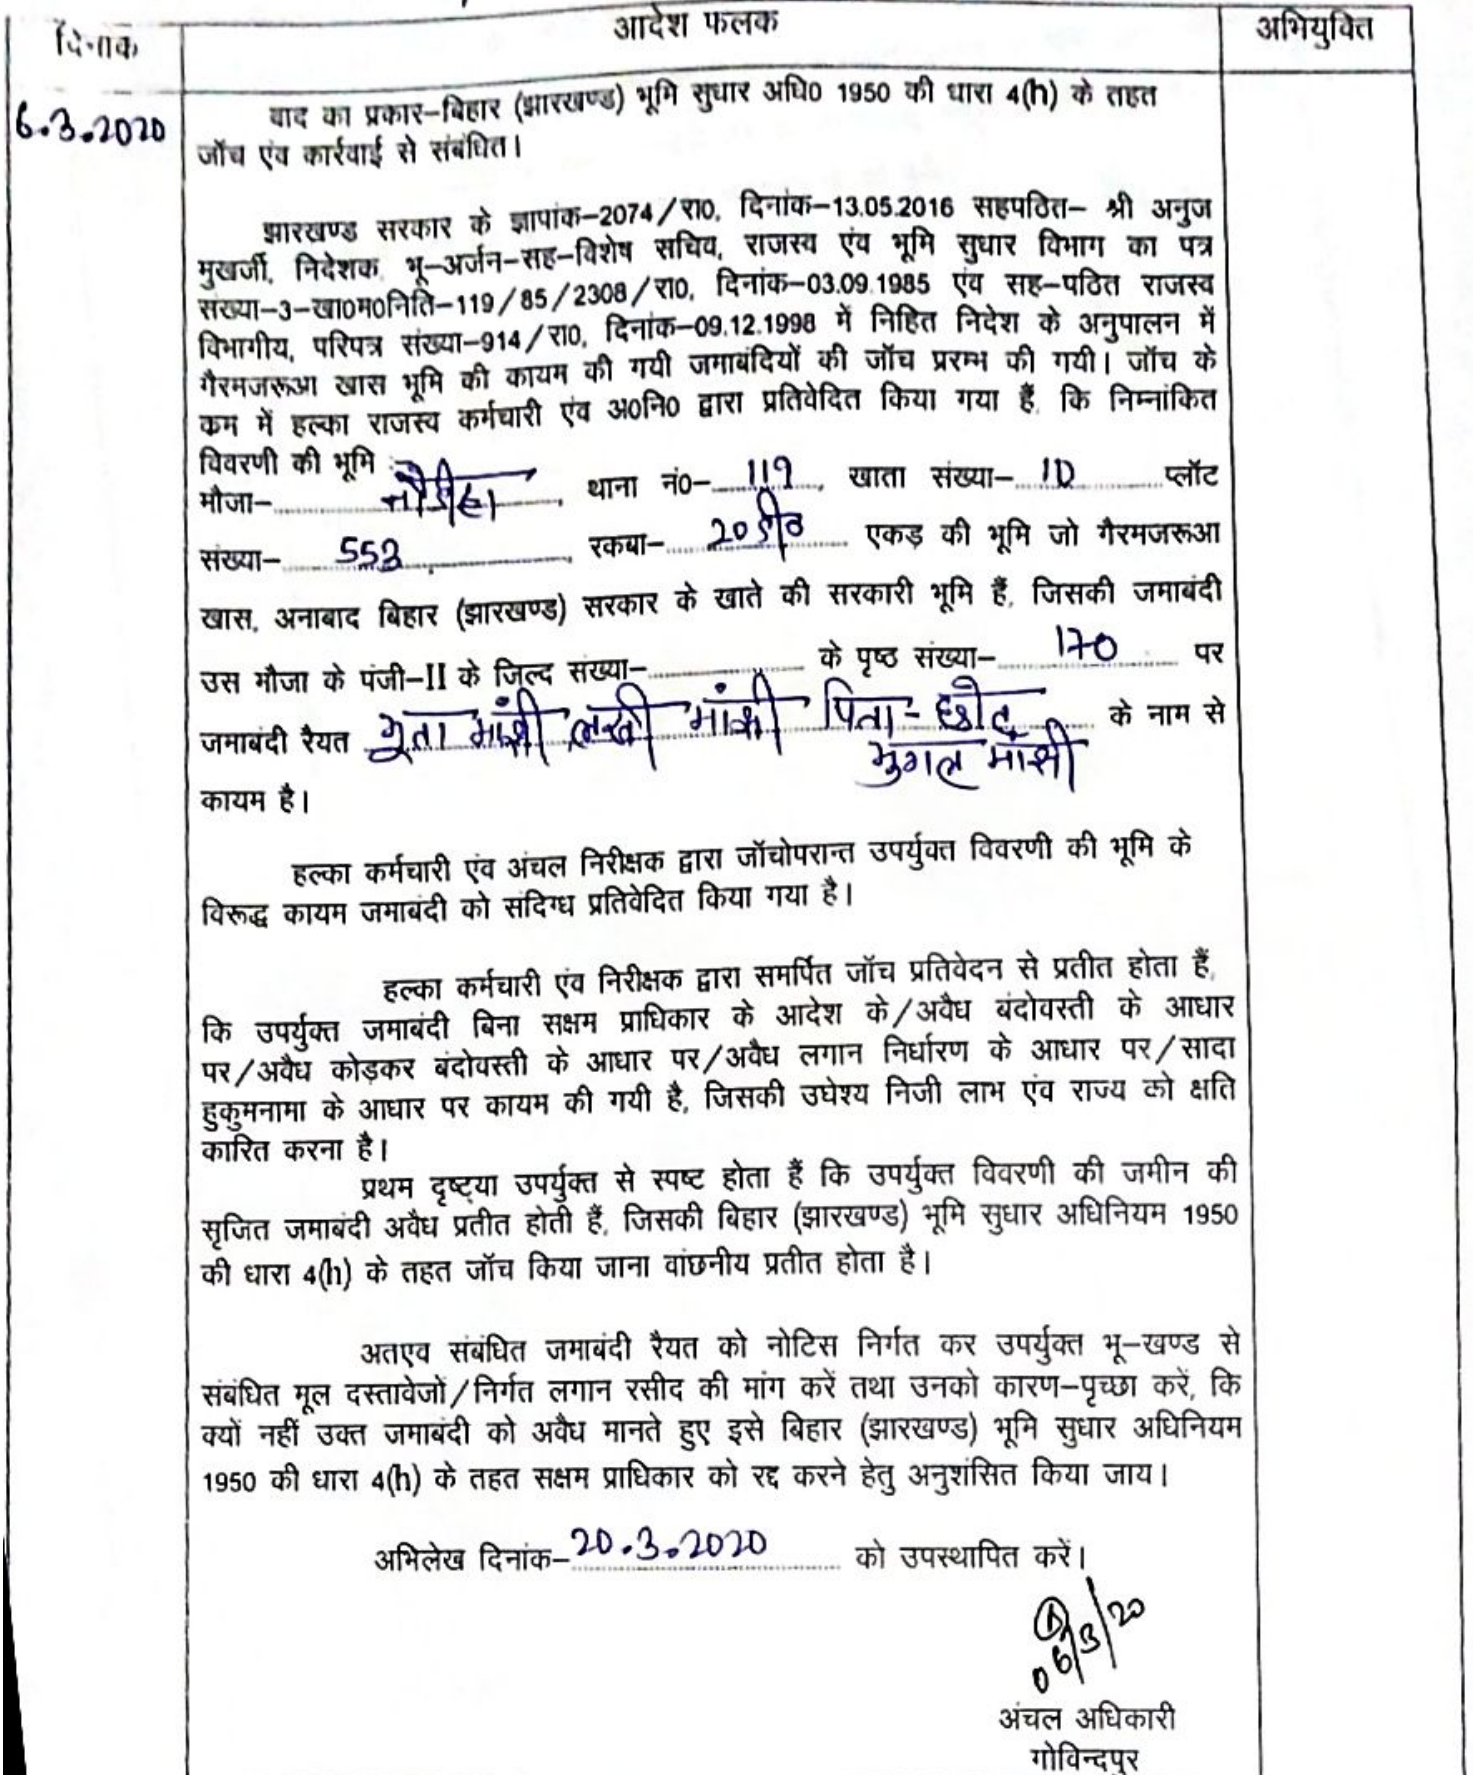 दिनांक
आदेश फलक
अभियुक्ति
6.3.2020
वाद का प्रकार–बिहार (झारखण्ड) भूमि सुधार अधि0 1950 की धारा 4(h) के तहत
जॉच एंव कार्रवाई से संबंधित।
झारखण्ड सरकार के ज्ञापांक–2074/रा0, दिनांक–13.05.2016 सहपठित– श्री अनुज
मुखर्जी, निदेशक, भू–अर्जन–सह–विशेष सचिव, राजस्व एंव भूमि सुधार विभाग का पत्र
संख्या–3–खा0म0निति–119/85/2308/रा0, दिनांक–03.09.1985 एंव सह–पठित राजस्व
विभागीय, परिपत्र संख्या–914/रा0, दिनांक–09.12.1998 में निहित निदेश के अनुपालन में
गैरमजरूआ खास भूमि की कायम की गयी जमाबंदियों की जॉच प्ररम्भ की गयी। जॉच के
कम में हल्का राजस्व कर्मचारी एंव अ0नि0 द्वारा प्रतिवेदित किया गया हैं, कि निम्नांकित
विवरणी की भूमि :–
मौजा– थाना नं0– 119, खाता संख्या– 10 प्लॉट
संख्या– 553, रकबा– 20 डी0 एकड़ की भूमि जो गैरमजरूआ
खास, अनाबाद बिहार (झारखण्ड) सरकार के खाते की सरकारी भूमि हैं, जिसकी जमाबंदी
उस मौजा के पंजी–II के जिल्द संख्या– के पृष्ठ संख्या– 170 पर
जमाबंदी रैयत मांझी लखी मांझी पिता - छोटु के नाम से
मुगल मांझी
कायम है।
हल्का कर्मचारी एंव अंचल निरीक्षक द्वारा जॉचोपरान्त उपर्युक्त विवरणी की भूमि के
विरूद्ध कायम जमाबंदी को संदिग्ध प्रतिवेदित किया गया है।
हल्का कर्मचारी एंव निरीक्षक द्वारा समर्पित जॉच प्रतिवेदन से प्रतीत होता हैं,
कि उपर्युक्त जमाबंदी बिना सक्षम प्राधिकार के आदेश के/अवैध बंदोवस्ती के आधार
पर/अवैध कोड़कर बंदोवस्ती के आधार पर/अवैध लगान निर्धारण के आधार पर/सादा
हुकुमनामा के आधार पर कायम की गयी है, जिसकी उघेश्य निजी लाभ एंव राज्य को क्षति
कारित करना है।
प्रथम दृष्ट्या उपर्युक्त से स्पष्ट होता हैं कि उपर्युक्त विवरणी की जमीन की
सृजित जमाबंदी अवैध प्रतीत होती हैं, जिसकी बिहार (झारखण्ड) भूमि सुधार अधिनियम 1950
की धारा 4(h) के तहत जॉच किया जाना वांछनीय प्रतीत होता है।
अतएव संबंधित जमाबंदी रैयत को नोटिस निर्गत कर उपर्युक्त भू–खण्ड से
संबंधित मूल दस्तावेजों/निर्गत लगान रसीद की मांग करें तथा उनको कारण–पृच्छा करें, कि
क्यों नहीं उक्त जमाबंदी को अवैध मानते हुए इसे बिहार (झारखण्ड) भूमि सुधार अधिनियम
1950 की धारा 4(h) के तहत सक्षम प्राधिकार को रद्द करने हेतु अनुशंसित किया जाय।
अभिलेख दिनांक– 20.3.2020 को उपस्थापित करें।
06/3/20
अंचल अधिकारी
गोविन्दपुर